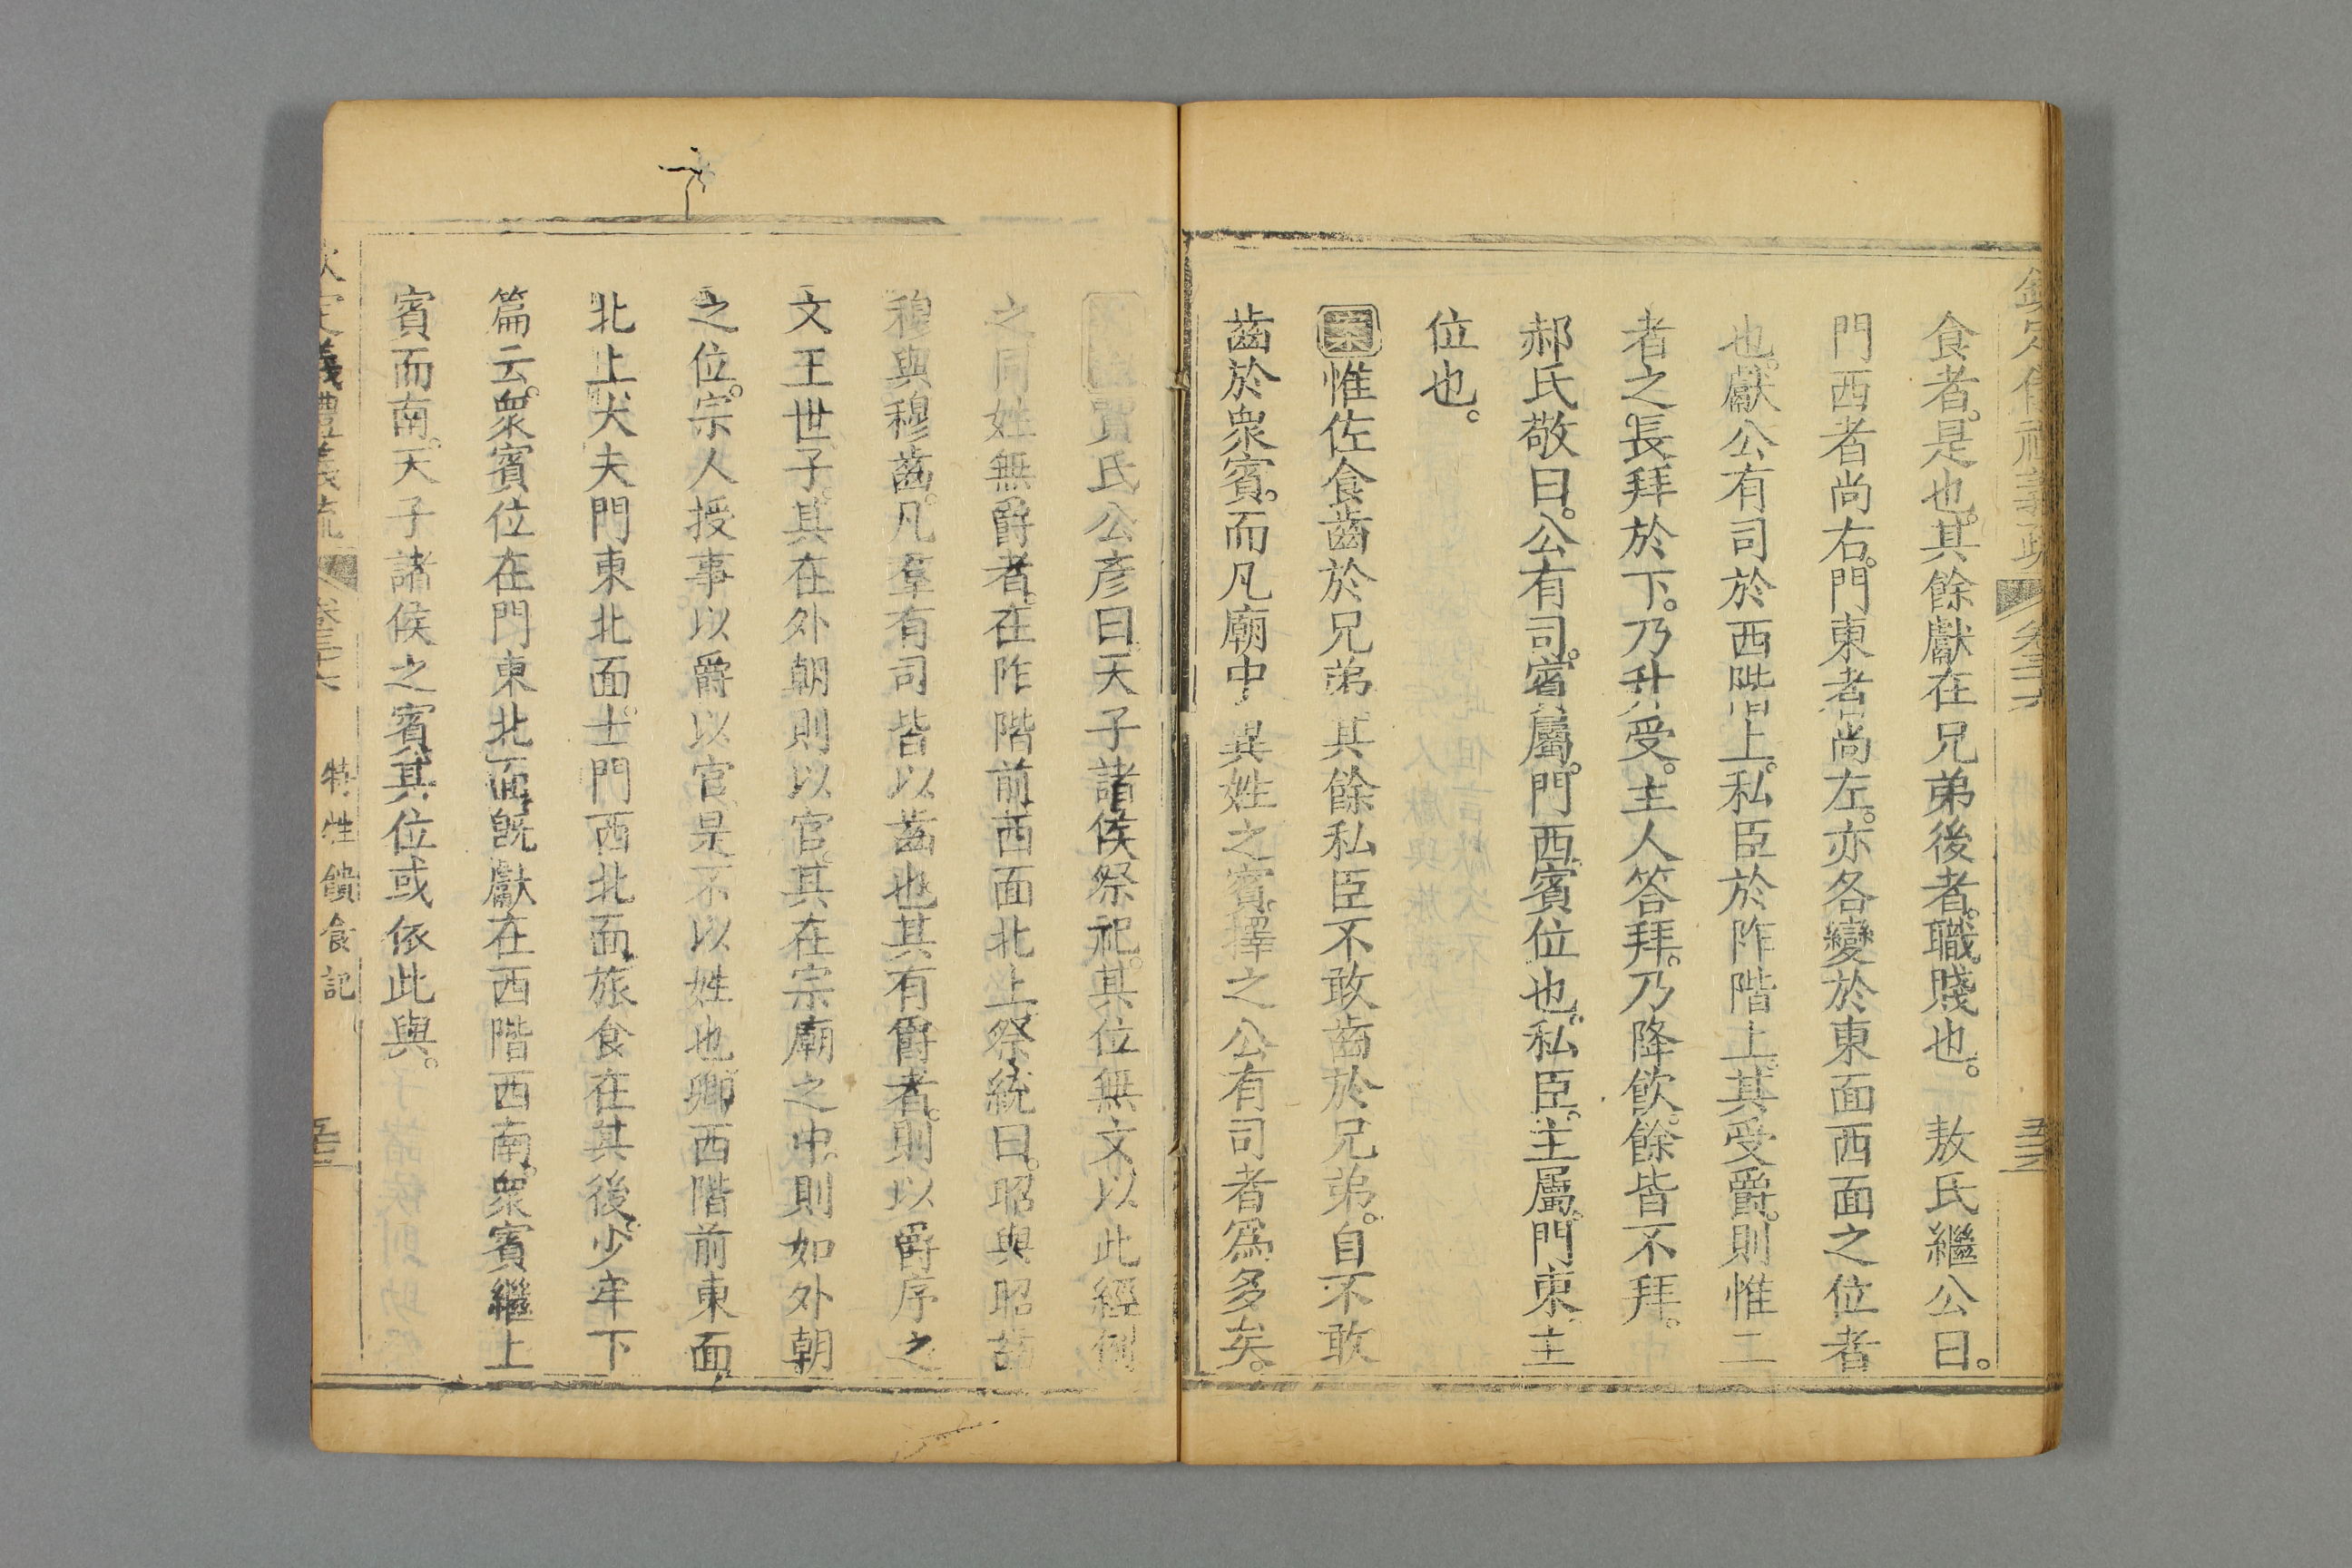 食者。是也。其餘獻在兄弟後者。職賤也。 敖氏繼公曰。
門西者尚右。門東者尚左。亦各變於東面西面之位者
也。獻公有司於西階上。私臣於阼階上。其受爵。則惟二
者之長拜於下。乃升受。主人答拜。乃降飲。餘皆不拜。
郝氏敬曰。公有司。賓屬。門西賓位也。私臣。主屬。門東。主
位也。
案惟佐食齒於兄弟其餘私臣不敢齒於兄弟。自不敢
齒於衆賓。而凡廟中異姓之賓。擇之公有司者爲多矣。
賈氏公彥曰天子諸侯祭祀。其位無文以此經例
之同姓無爵者。在阼階前西面北上祭統曰。昭與昭齒
穆與穆齒。凡羣有司皆以齒也其有爵者。則以爵序之
文王世子。其在外朝則以官。其在宗廟之中。則如外朝
之位。宗人授事。以爵以官是不以姓也卿西階前東面
北上大夫門東北面。士門西北面旅食在其後。少牢下
篇云。衆賓位在門東北面。旣獻在西階西南。衆賓繼上
賓而南。天子諸侯之賓其位或依此與。
義禮義疏 卷三十六 特牲饋食記